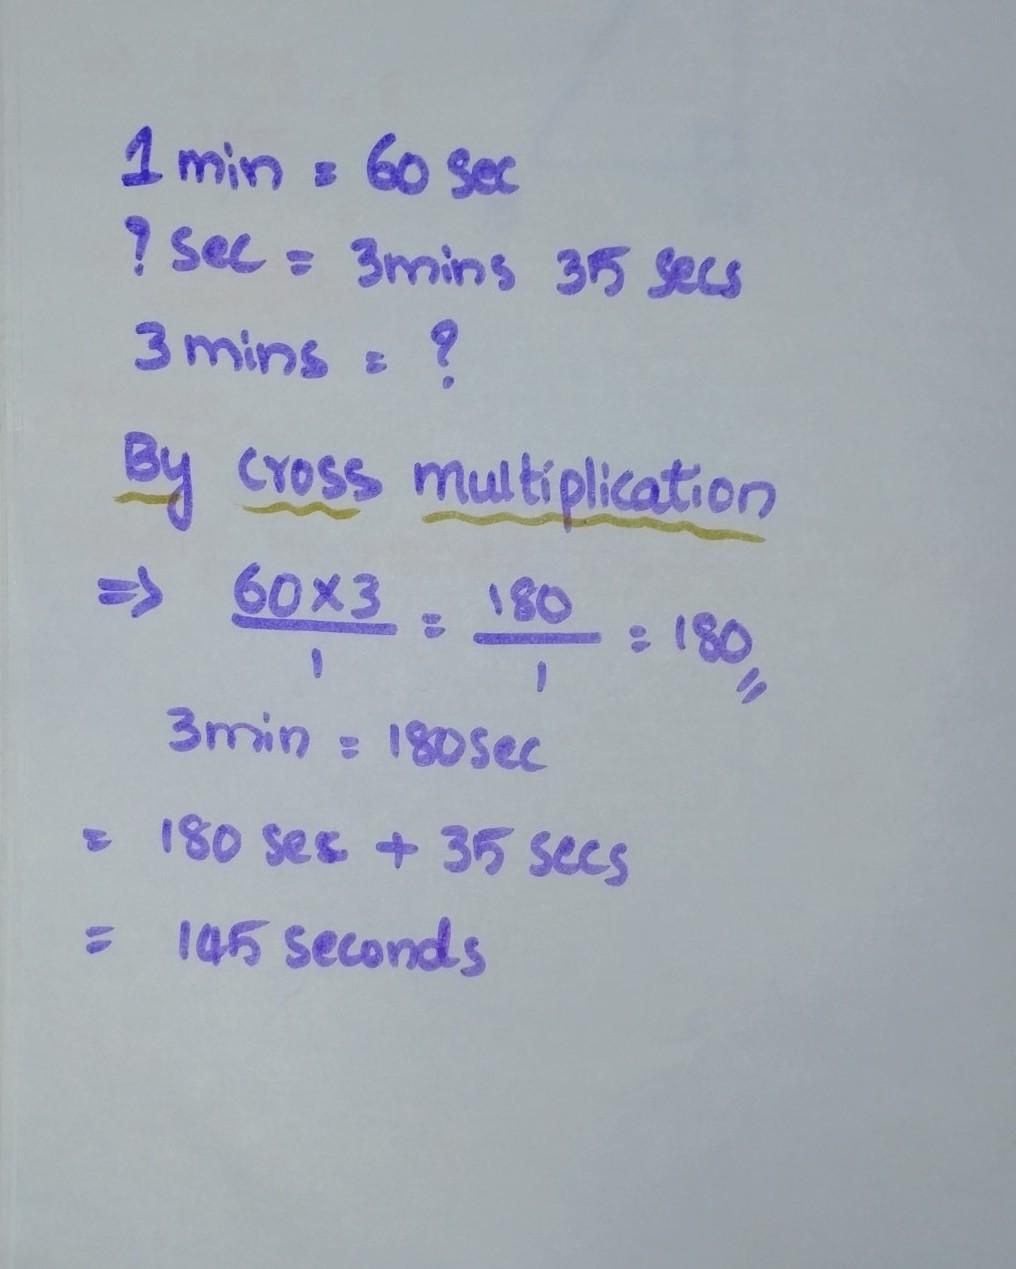 1 min = 60 sec
? sec = 3mins 35 secs
3 mins = ?
By cross multiplication
=> 60x3/1 = 180/1 = 180 //
3min = 180sec
= 180 sec + 35 secs
= 145 seconds